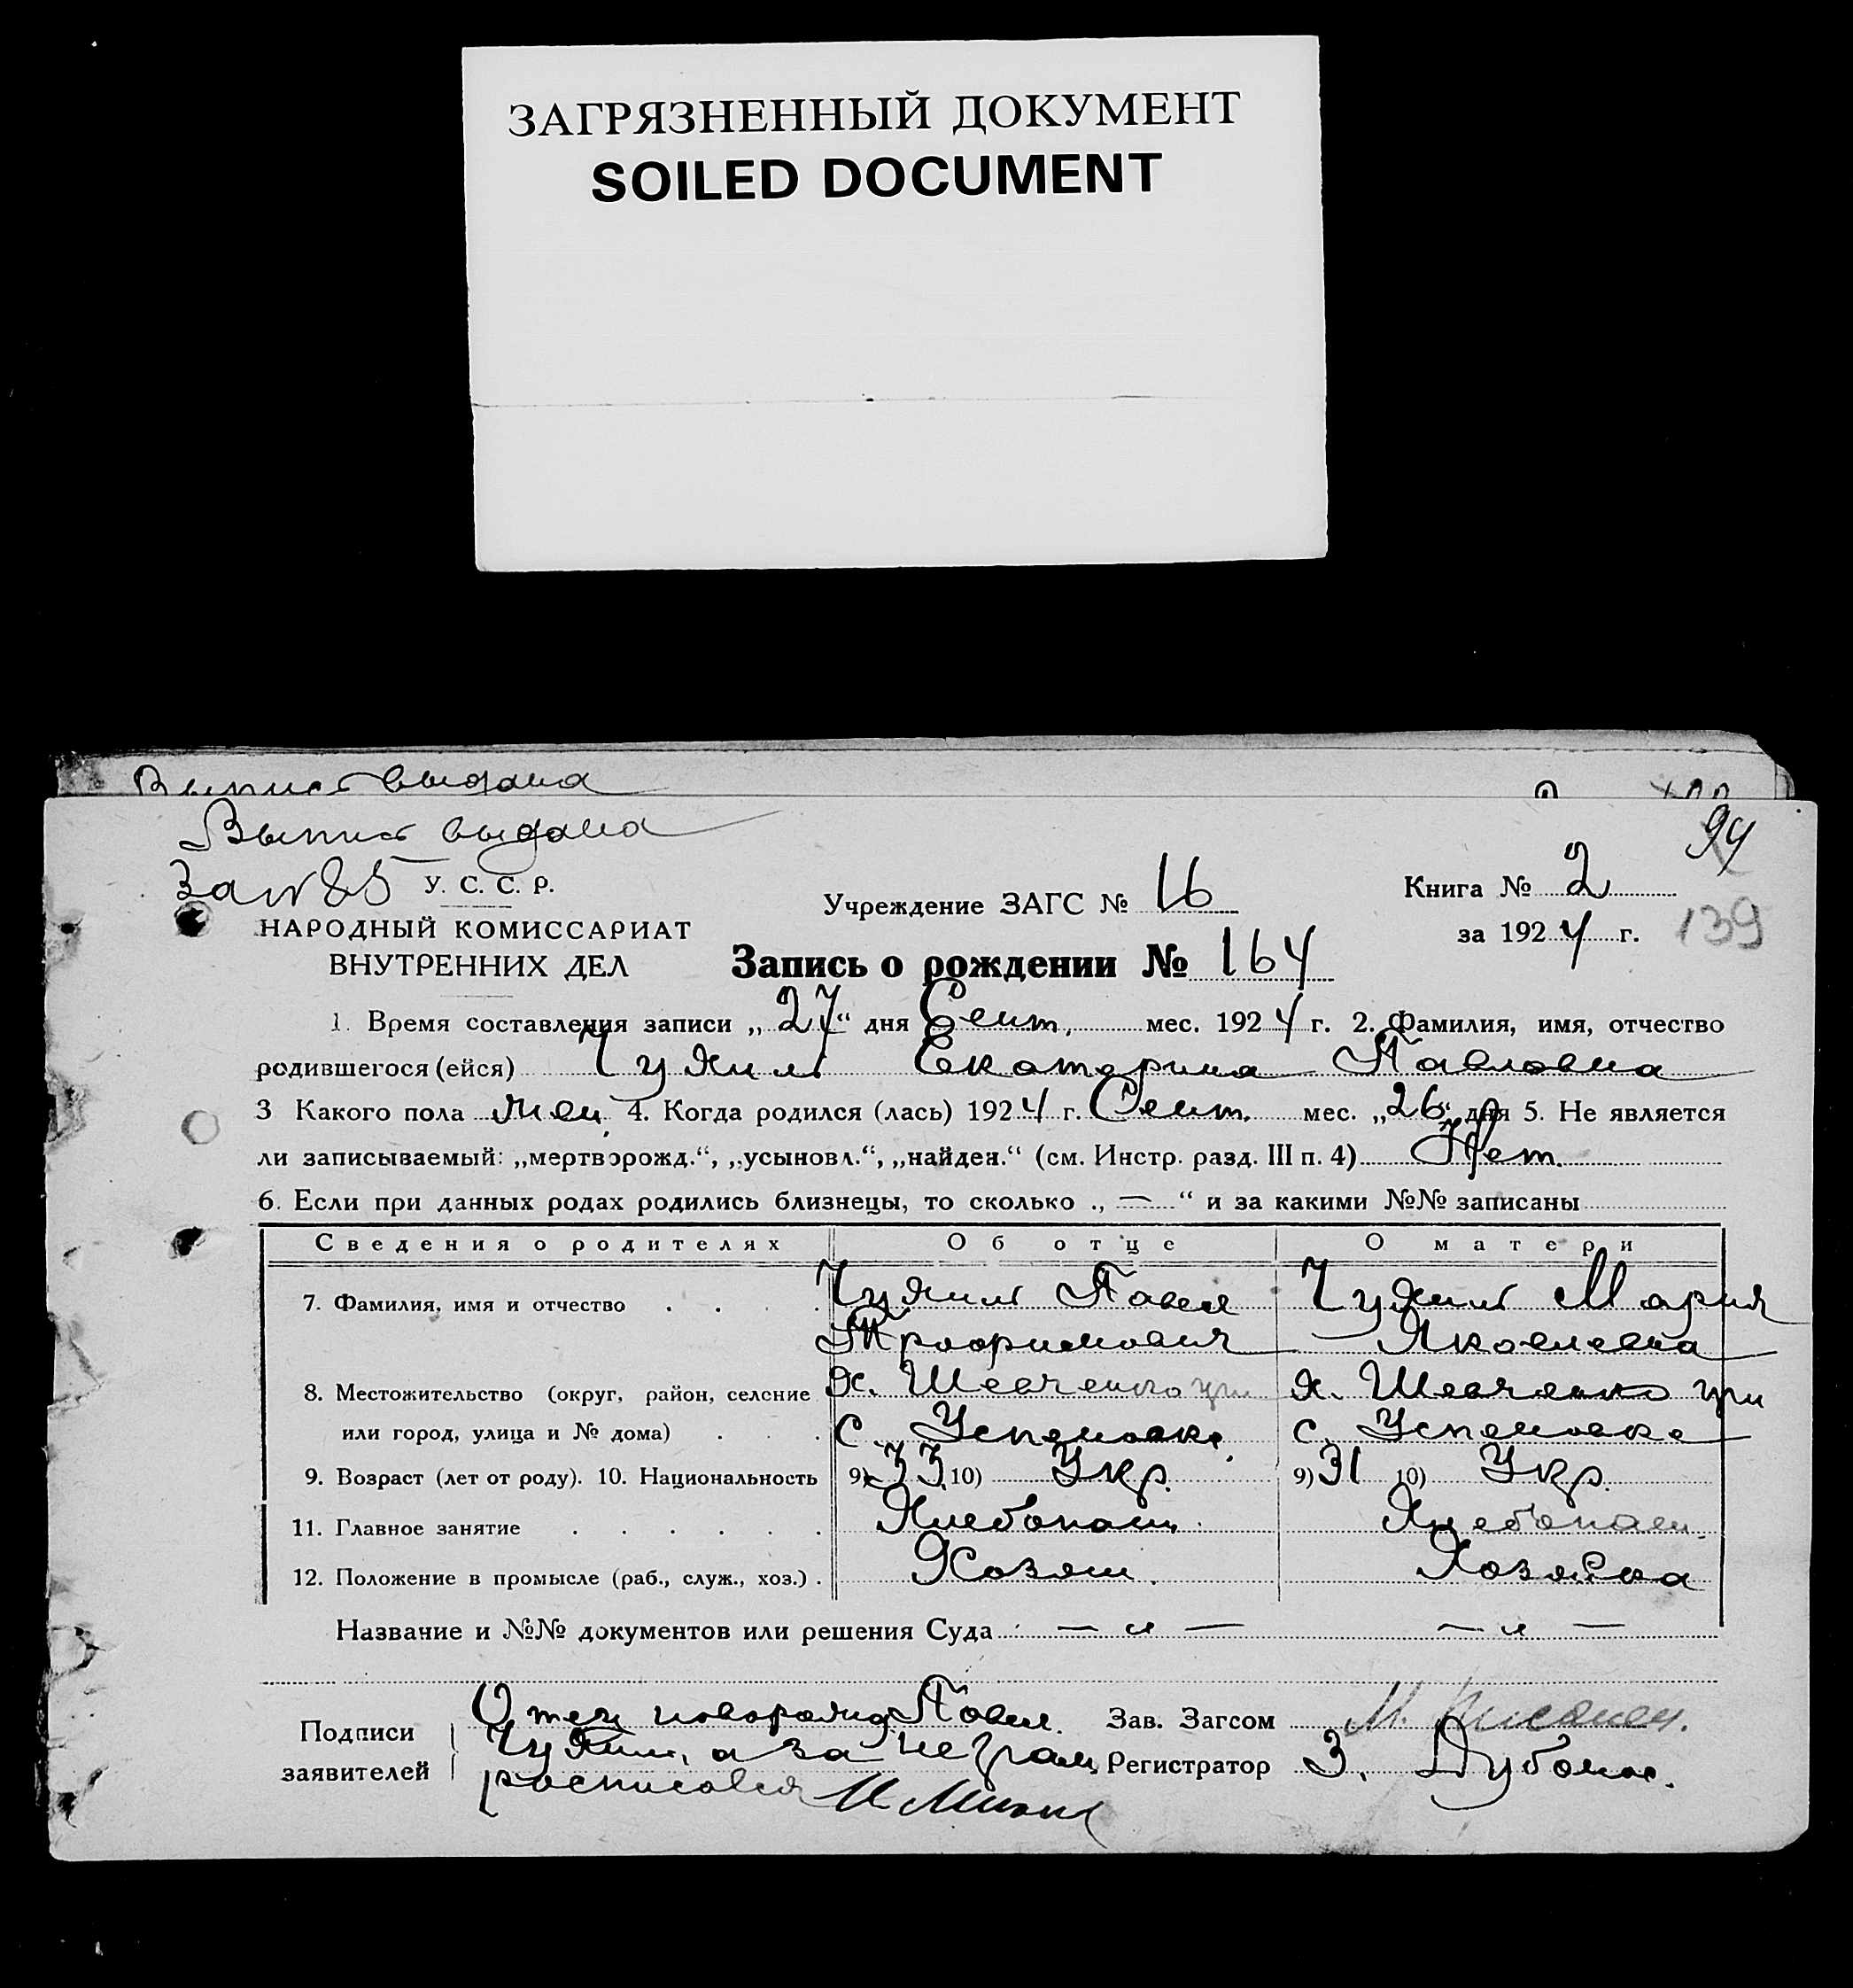 ЗАГРЯЗНЕННЫЙ ДОКУМЕНТ
SOILED DOCUMENT
Выпись выдана
Выпись выдана
94
За № 85 У. С. С. Р.
Учреждение ЗАГС № 16
Книга № 2
НАРОДНЫЙ КОМИССАРИАТ
за 1924 г.
139
ВНУТРЕННИХ ДЕЛ
Запись о рождении № 164
1. Время составления записи „27“ дня Сент. мес. 1924 г. 2. Фамилия, имя, отчество
родившегося (ейся) Чухиль Екатерина Павловна
3 Какого пола жен. 4. Когда родился (лась) 1924 г. Сент. мес. „26“ дня 5. Не является
ли записываемый: „мертворожд.“, „усыновл.“, „найден.“ (см. Инстр. разд. III п. 4) Нет.
6. Если при данных родах родились близнецы, то сколько „—“ и за какими №№ записаны
Сведения о родителях Об отце О матери
7. Фамилия, имя и отчество . . . . Чухиль Павел Чухиль Мария
Трофимович Яковлевна
8. Местожительство (округ, район, селение х. Шевченко при х. Шевченко при
или город, улица и № дома) . . . с. Успеновке. с. Успеновке
9. Возраст (лет от роду). 10. Национальность 9) 33 10) Укр. 9) 31 10) Укр.
11. Главное занятие . . . . . . Хлебопаш. Хлебопаш.
12. Положение в промысле (раб., служ., хоз.) . Хозяин. Хозяйка
Название и №№ документов или решения Суда — „ — — „ —
Подписи
заявителей
Отец новорожд. Павел.
Чухиль, а за неграм.
росписался
Зав. Загсом М.
Регистратор З.